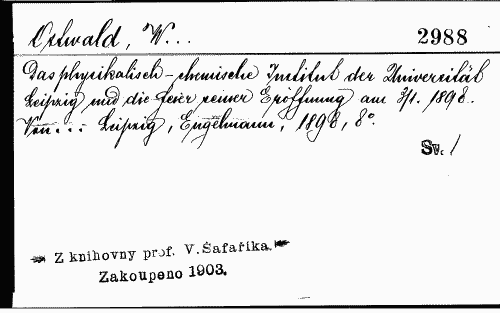 Ostwald, W...
2988
Das physikalisch-chemische Institut der Universität
Leipzig und die feier seiner Eröffnung am 3/1. 1898.
Von... Leipzig, Engelmann, 1898, 8°.
Sv. /
Z knihovny prof. V. Šafaříka.
Zakoupeno 1903.